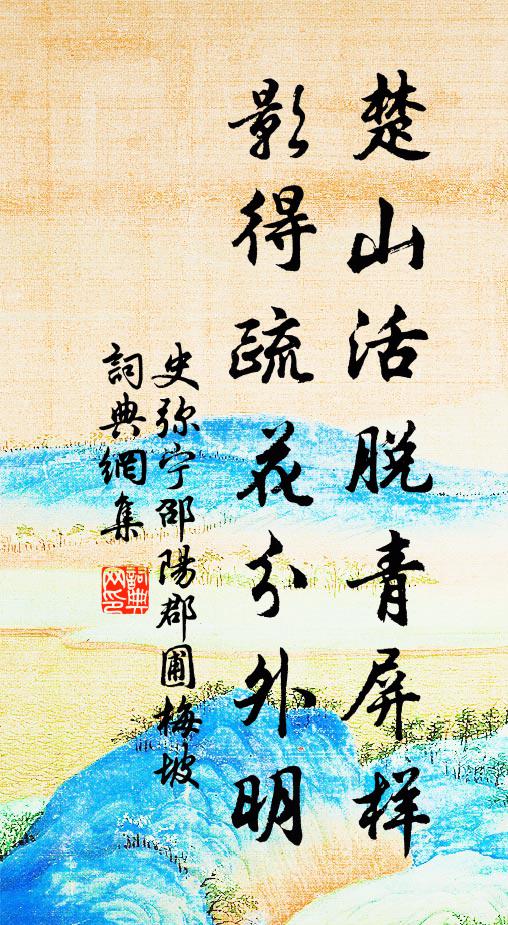 楚山活脱青屏样
影得疏花分外明
史弥宁邵陽郡圃梅坡
詞典網集
詞典網印